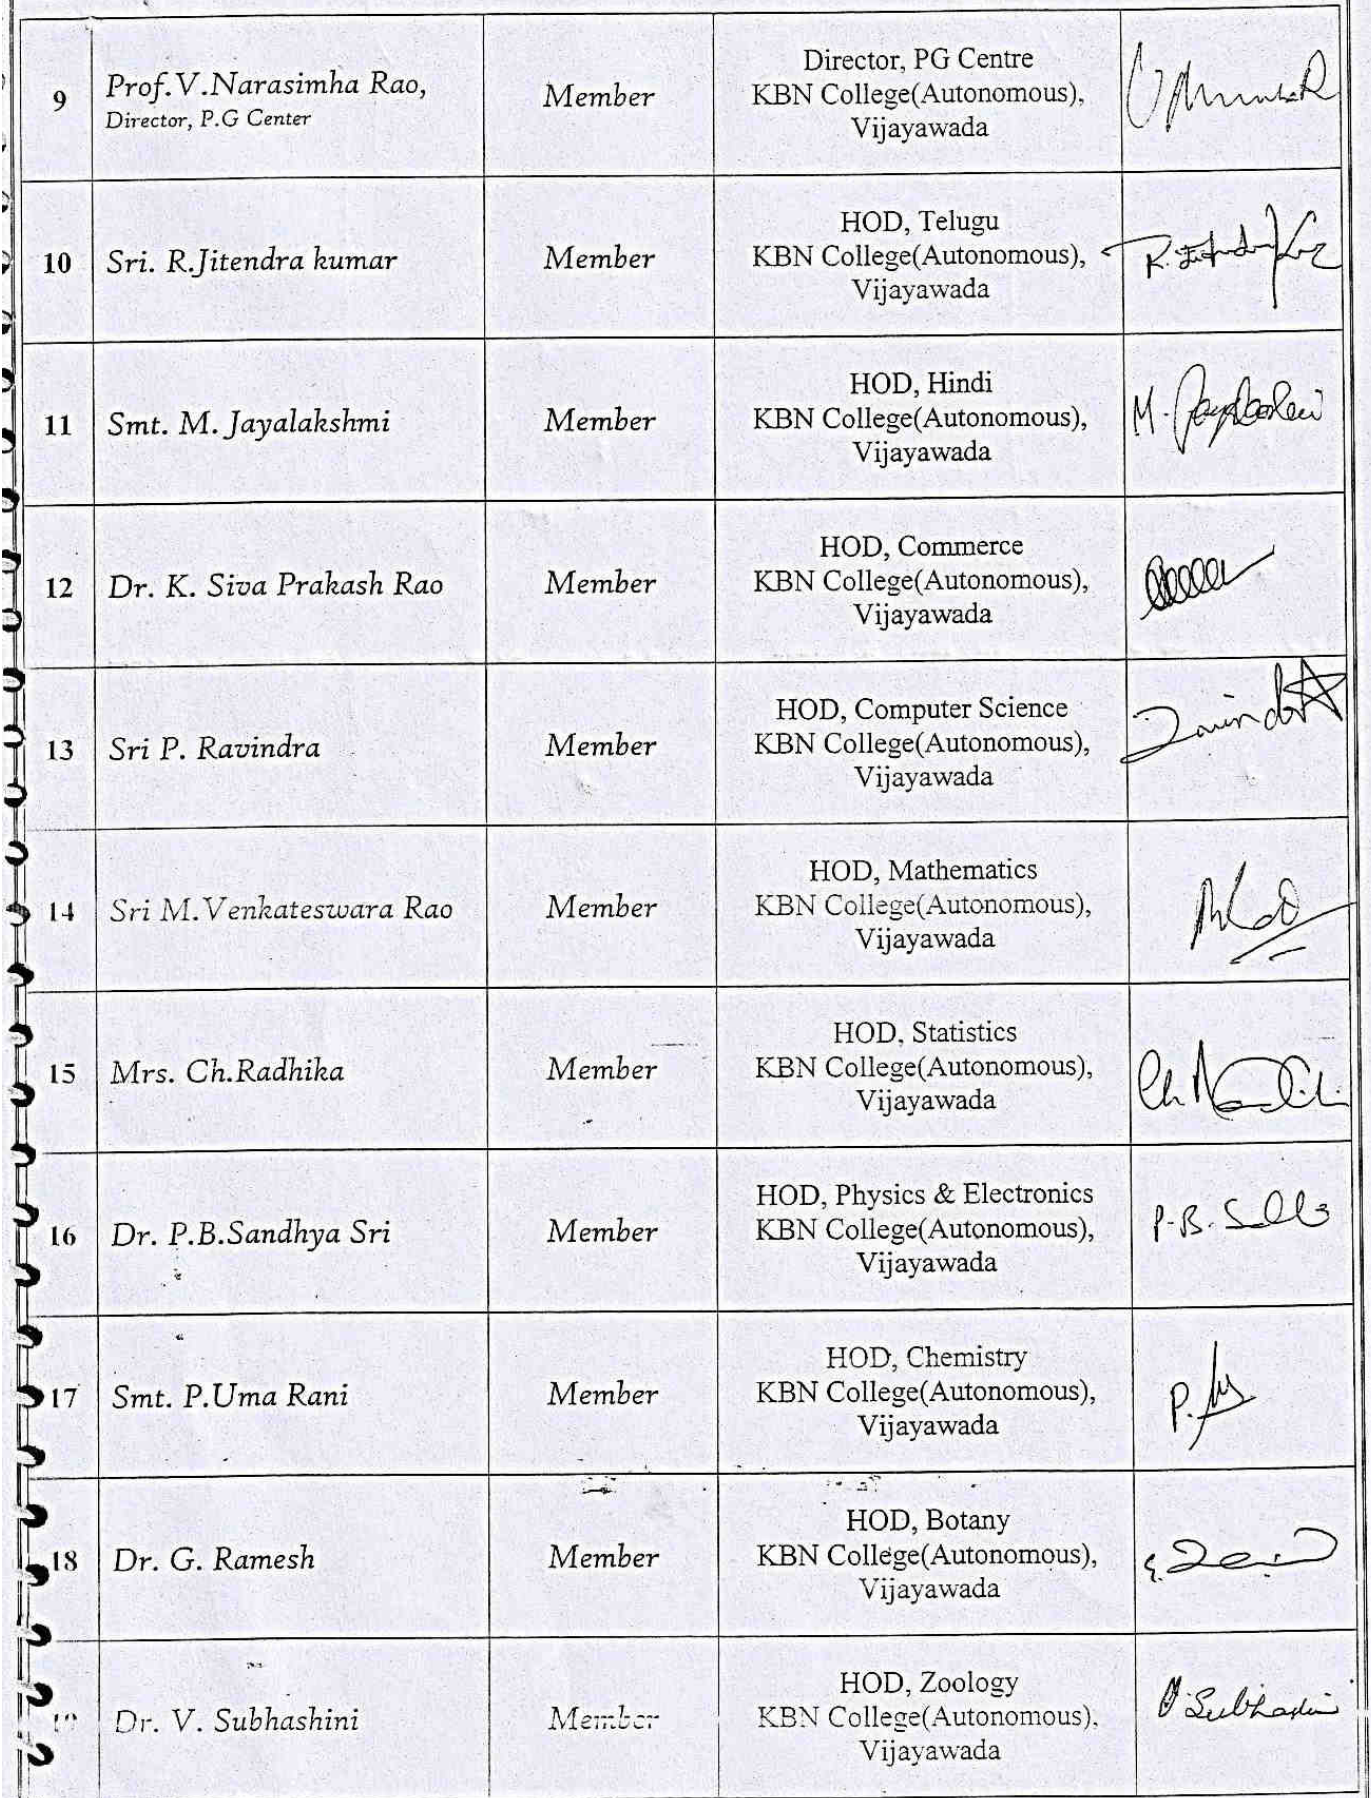 9
Prof.V.Narasimha Rao,
Director, P.G Center
Member
Director, PG Centre
KBN College(Autonomous),
Vijayawada
10
Sri. R.Jitendra kumar
Member
HOD, Telugu
KBN College(Autonomous),
Vijayawada
11
Smt. M. Jayalakshmi
Member
HOD, Hindi
KBN College(Autonomous),
Vijayawada
12
Dr. K. Siva Prakash Rao
Member
HOD, Commerce
KBN College(Autonomous),
Vijayawada
13
Sri P. Ravindra
Member
HOD, Computer Science
KBN College(Autonomous),
Vijayawada
14
Sri M.Venkateswara Rao
Member
HOD, Mathematics
KBN College(Autonomous),
Vijayawada
15
Mrs. Ch.Radhika
Member
HOD, Statistics
KBN College(Autonomous),
Vijayawada
16
Dr. P.B.Sandhya Sri
Member
HOD, Physics & Electronics
KBN College(Autonomous),
Vijayawada
P.B.
17
Smt. P.Uma Rani
Member
HOD, Chemistry
KBN College(Autonomous),
Vijayawada
P.
18
Dr. G. Ramesh
Member
HOD, Botany
KBN College(Autonomous),
Vijayawada
19
Dr. V. Subhashini
Member
HOD, Zoology
KBN College(Autonomous),
Vijayawada